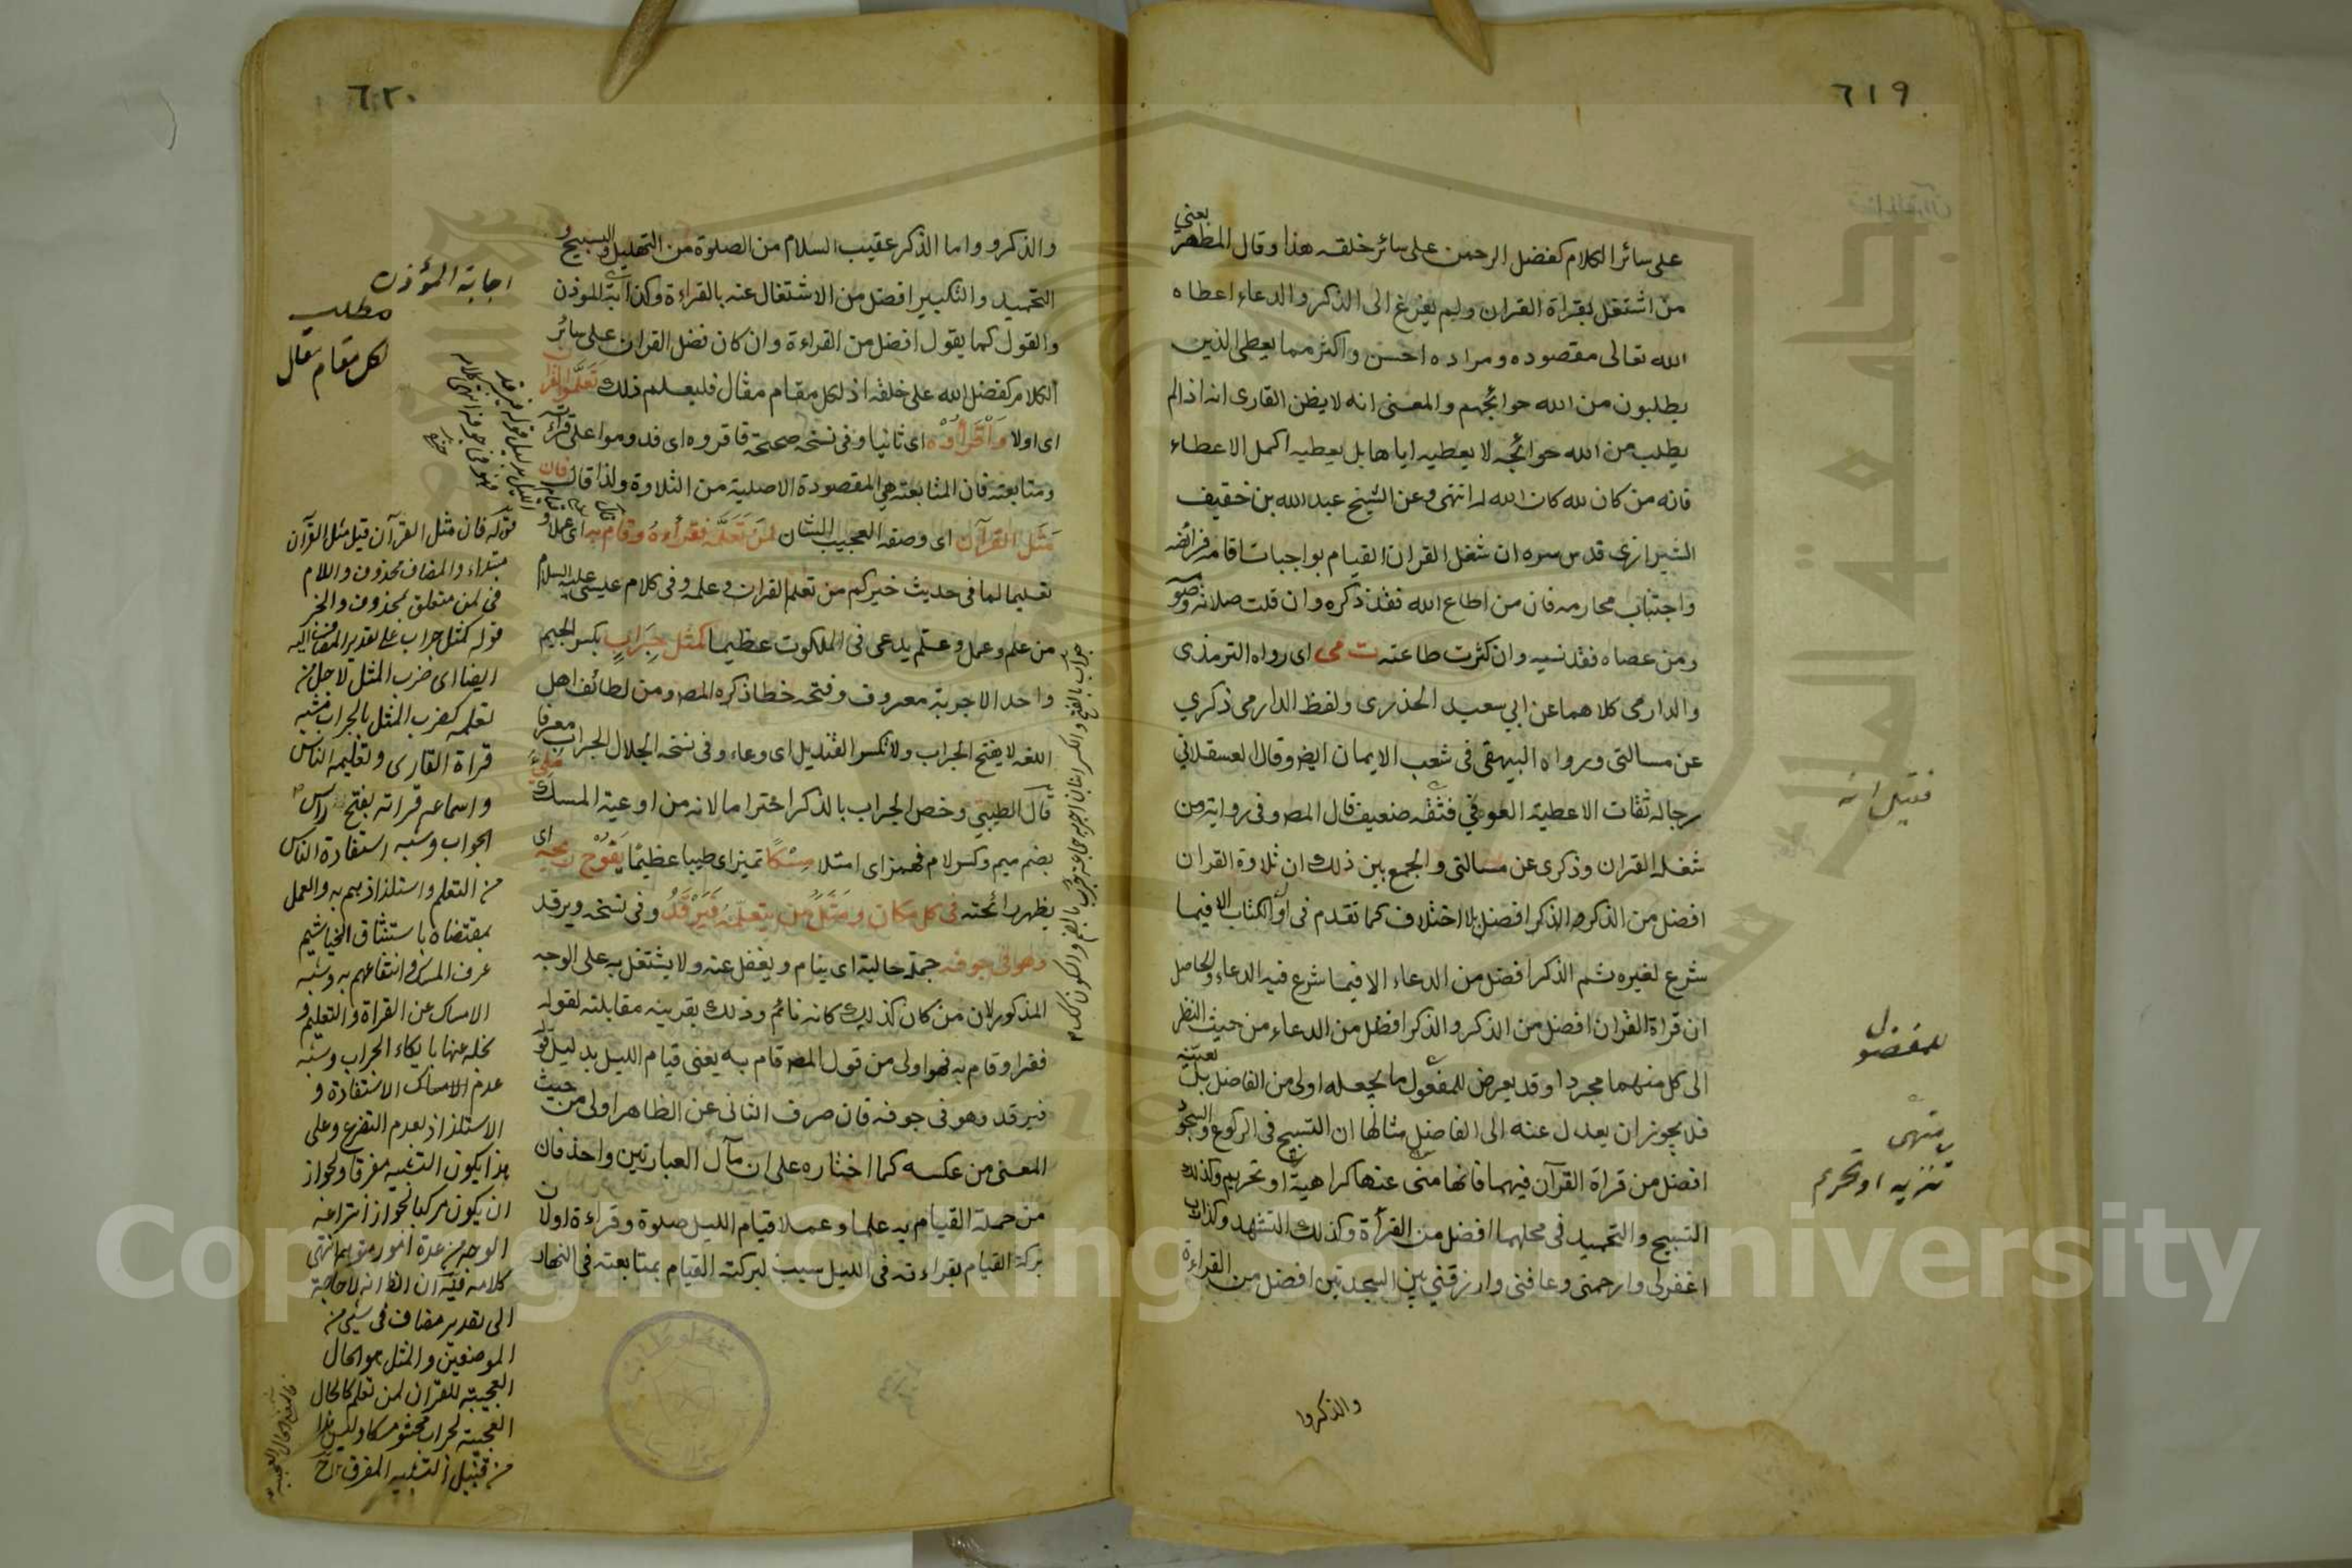 ٦١٩
يعني
على سائر الكلام كفضل الرحمن على سائر خلقه هذا وقال المظهر
من اشتغل بقراة القران ولم يفرغ الى الذكر والدعاء اعطاه
الله تعالى مقصوده ومراده احسن واكثر مما يعطى الذين
يطلبون من الله حوائجهم والمعنى انه لا يظن القارى انه اذا لم
يطلب من الله حوائجه لا يعطيه اياها بل يعطيه اكمل الاعطاء
فانه من كان لله كان الله له انتهى وعن الشيخ عبد الله بن خفيف
الشيرازى قدس سره ان شغل القران القيام بواجباته اقامة فرائضه
واجتناب محارمه فان من اطاع الله فقد ذكره وان قلت صلاته وصو
ومن عصاه فقد نسيه وان كثرت طاعته ت مى اى رواه الترمذى
والدارمى كلاهما عن ابي سعيد الخذرى ولفظ الدارمى ذكري
عن مسالتى ورواه البيهقى فى شعب الايمان ايض وقال العسقلاني
رجاله ثقات الا عطية العوفي ففيه ضعيف قال المص وفى رواية من
شغله القران وذكرى عن مسالتى والجمع بين ذلك ان تلاوة القران
افضل من الذكر والذكر افضل بلا اختلاف كما تقدم فى اول الكتاب الا فيما
شرع لغيره ثم الذكر افضل من الدعاء الا فيما شرع فيه الدعاء والحاصل
ان قراة القران افضل من الذكر والذكر افظل من الدعاء من حيث النظر
الى كل منهما مجردا وقد يعرض للمفعول ما يجعله اولى من الفاضل بل
قد يجوز ان يعدل عنه الى الفاضل مثالها ان التسبيح فى الركوع والسجو
افضل من قراة القرآن فيهما فانها منهى عنها كراهية او تحريم وكذلك
التسبيح والتحميد فى محلهما افضل من القرأة وكذلك التشهد وكذا رب
اغفرلى وارحمنى وعافنى وارزقنى بين السجدتين افضل من القراءة
والذكروا
فقيل انه
للمفضول
تنزيه او تحريم
٦٢٠
والذكرو واما الذكر عقيب السلام من الصلوة من التهليل والتسبيح و
التحميد والتكبير افضل من الاشتغال عنه بالقراءة وكذا اجابة الموذن
والقول كما يقول افضل من القراءة وان كان فضل القران على سائر
الكلام كفضل الله على خلقه اذ لكل مقام مقال فليعلم ذلك تعلموا القرا
اى اولا واقرأوه اى ثانيا وفى نسخة صحيحة فاقروه اى فدوموا على قرأته
ومتابعته فان المتابعة هي المقصودة الاصلية من التلاوة ولذا قال فان
مثل القرآن اى وصفه العجيب الشان لمن تعلمه فقرأه وقام به اى عملا و
تعليما لما فى حديث خيركم من تعلم القران وعلمه وفى كلام عيسى عليه السلام
من علم وعمل وعلم يدعى فى الملكوت عظيما كمثل جراب بكسر الجيم
واحد الاجربة معروف وفتحه خطا ذكره المص ومن لطائف اهل
اللغه لا يفتح الجراب ولا تكسر القنديل اى وعاء وفى نسخة الجلال الجراب معرفا
قال الطيبي وخص الجراب بالذكر احتراما لانه من اوعية المسك ملئ
بضم ميم وكسر لام فهمز اى امتلا مسكا تميز اى طيبا عظيما يفوح ريحه اى
يظهر رائحته فى كل مكان ومثل من يتعلمه فيرقد وفى نسخه ويرقد
وهو فى جوفه جملة حالية اى ينام ويغفل عنه ولا يشتغل به على الوجه
المذكور لان من كان كذلك كانه نائم وذلك بقرينه مقابلته لقوله
فقرا وقام به فهو اولى من قول المص قام به يعنى قيام الليل بدليل قو
فيرقد وهو فى جوفه فان صرف الثانى عن الظاهر اولى من حيث
المعنى من عكسه كما اختاره على ان مآل العبارتين واحد فان
من جملة القيام به علما وعملا قيام الليل صلوة وقراءة اولا ن
بركة القيام بقراءته فى الليل سبب لبركة القيام بمتابعته فى النهار
اجابة المؤذن
مطلب
لكل مقام مقال
قوله فان مثل القرآن قيل مثل القرآن
مبتداء والمضاف محذوف واللام
فى لمن متعلق بمحذوف والخبر
قوله كمثل جراب على تقدير المضاف اليه
ايضا اى ضرب المثل لاجل من
تعلمه كضرب المثل بالجراب فشبه
قراة القارى وتعليمه الناس
واسماعه قراته بفتح راس
الجراب وشبه استفادة الناس
من التعلم واستلذاذهم به والعمل
بمقتضاه باستنشاق الخياشيم
عرف المسك وانتفاعهم به وشبه
الامساك عن القراة والتعليم و
بخله عنها بايكاء الجراب وشبه
عدم الامساك الاستفادة و
الاستلذاذ بعدم التضرع وعلى
هذا يكون التشبيه مفرقا ولجواز
ان يكون مركبا لجواز انتراعه
الوجه من عدة امور متوهمة انتهى
كلامه فيه ان الظ انه لا حاجة
الى تقدير مضاف فى شيئ من
الموضعين والمثل هو الحال
العجيبة للقران لمن تعلم كالحال
العجيبة لجراب محشو مسكا وليس هذا
من قبيل التشبيه المفرق
Copyright © King Saud University